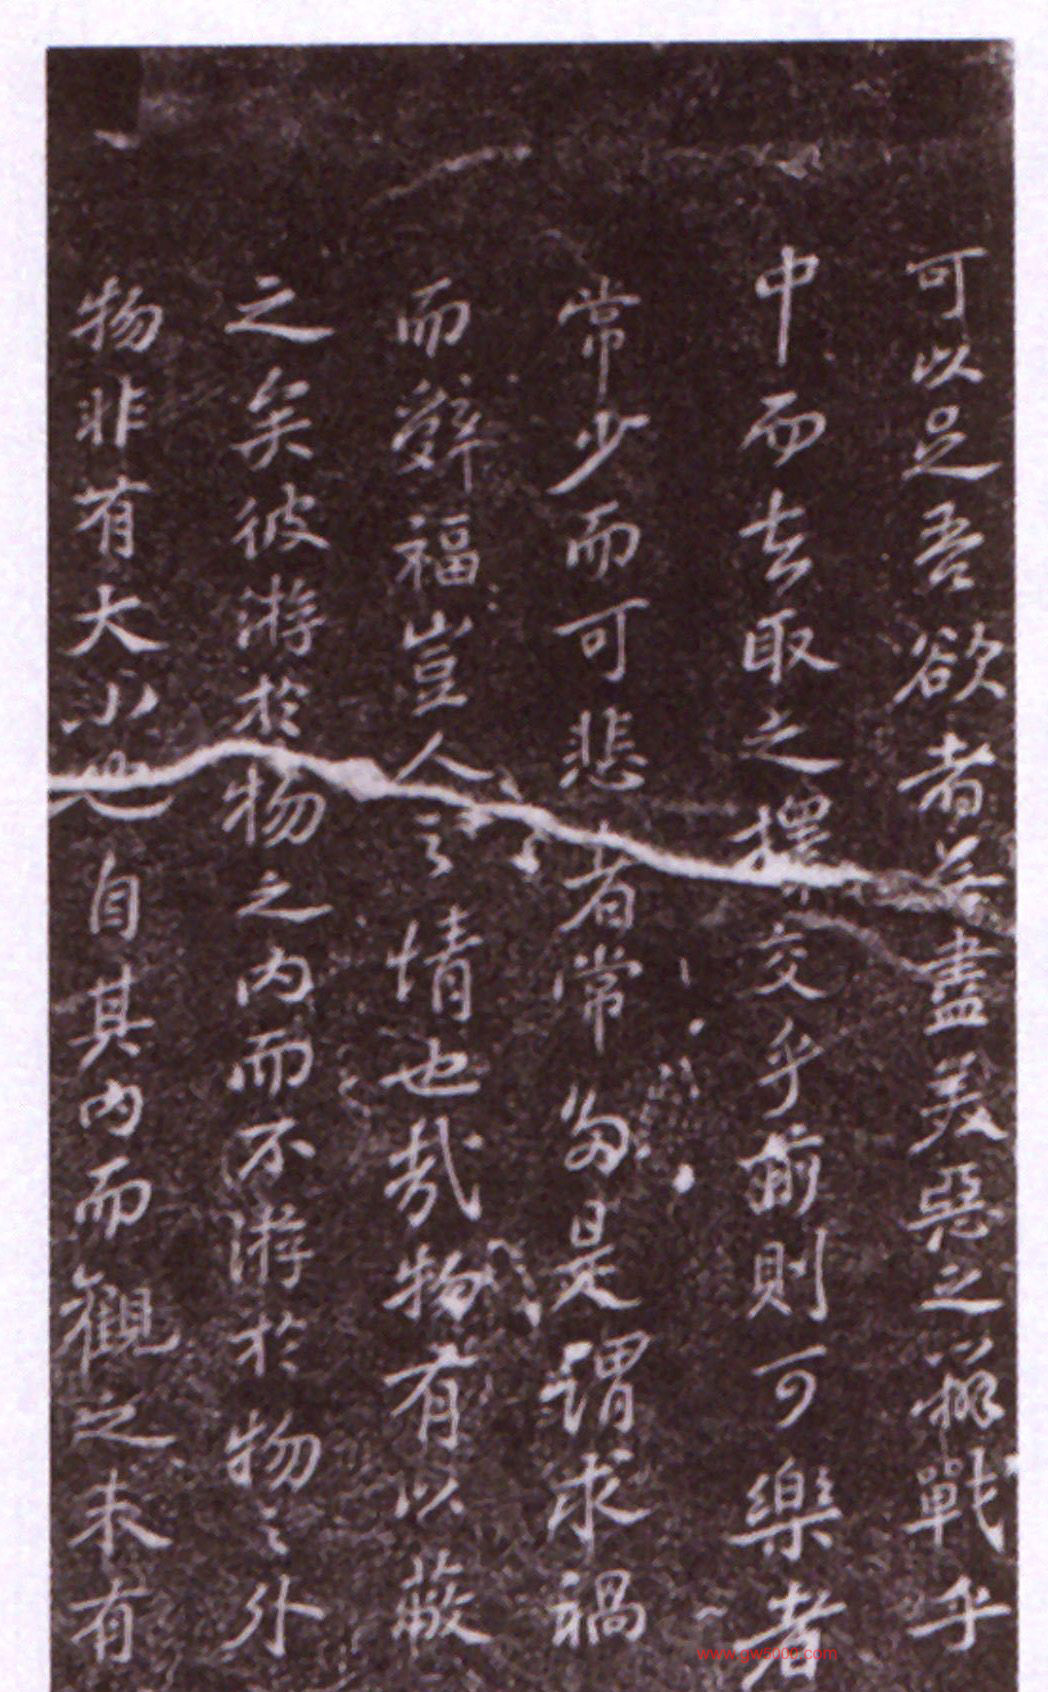 可以足吾欲者盡美惡之辨戰乎
中而去取之擇交乎前則可樂者
常少而可悲者常多是謂求禍
而辭福豈人之情也哉物有以蔽
之矣彼游於物之內而不游於物之外
物非有大小也自其內而觀之未有